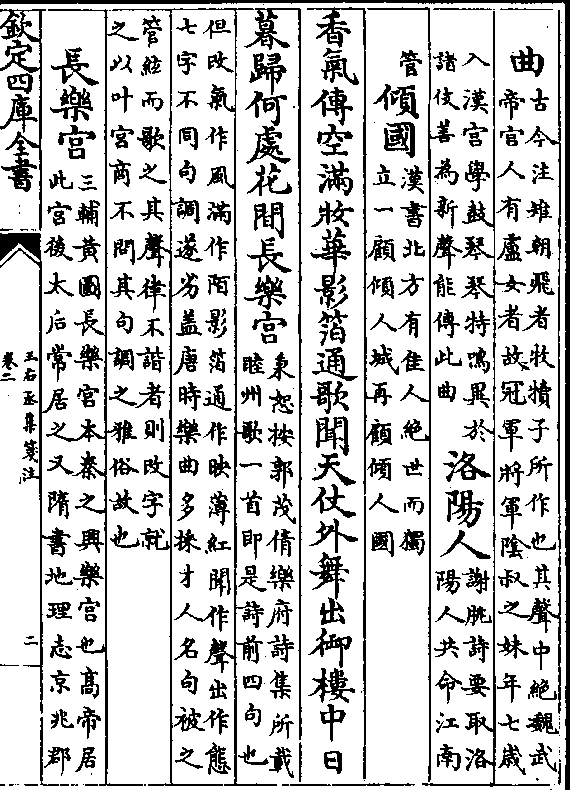 曲
古今注雉朝飛者牧犢子所作也其聲中絶魏武
帝官人有盧女者故冠軍將軍陰叔之妹年七歳
入漢宮學鼓琴琴特鳴異於
諸伎善為新聲能傳此曲
洛陽人
謝朓詩要取洛
陽人共命江南
管
傾國
漢書北方有佳人絶世而獨
立一顧傾人城再顧傾人國
香氣傳空滿妝華影箔通歌聞天仗外舞出御樓中日
暮歸何處花間長樂宮
秉恕按郭茂倩樂府詩集所載
睦州歌一首即是詩前四句也
但改氣作風滿作陌影箔通作映薄紅聞作聲出作態
七字不同句調遂劣盖唐時樂曲多採才人名句被之
管絃而歌之其聲律不諧者則改字就
之以叶宮商不問其句調之雅俗故也
長樂宮
三輔黃圖長樂宮本秦之興樂宮也髙帝居
此宮後太后常居之又隋書地理志京兆郡
欽定四庫全書
王右丞集箋注
卷二
二